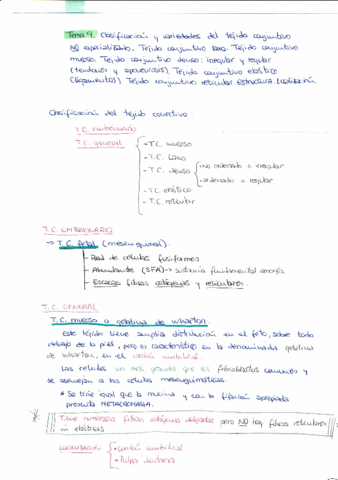 Tema 9. Clasificación y variedades del tejido conjuntivo
NO especializado. Tejido conjuntivo laxo. Tejido conjuntivo
mucoso. Tejido conjuntivo denso: irregular y regular
(tendones y aponeurosis). Tejido conjuntivo elástico
(ligamentos). Tejido conjuntivo reticular. Estructura. Localización.
Clasificación del tejido conectivo
T.C. embrionario
T.C. general
- T.C. mucoso
- T.C. laxo
- T.C. denso
- No ordenado o irregular
- ordenado o regular
- T.C. elástico
- T.C. reticular
T.C. EMBRIONARIO
→ T.C. fetal (mesenquimal).
- Red de células fusiformes
- Abundante (SFA) → sustancia fundamental amorfa.
- Escasas fibras colágenas y reticulares.
T.C. GENERAL
T.C. mucoso o gelatina de wharton
Este tejido tiene amplia distribución en el feto, sobre todo
debajo de la piel, pero es característico en la denominada gelatina
de wharton, en el cordón umbilical.
Las células son más grandes que los fibroblastos comunes y
se asemejan a las células mesenquimáticas.
* Se tiñe igual que la mucina y con la fijación apropiada
presenta METACROMASIA.
* Tiene numerosas fibras colágenas delgadas pero NO hay fibras reticulares
ni elásticas
LOCALIZACIÓN
• Cordón umbilical
• Pulpa dentaria